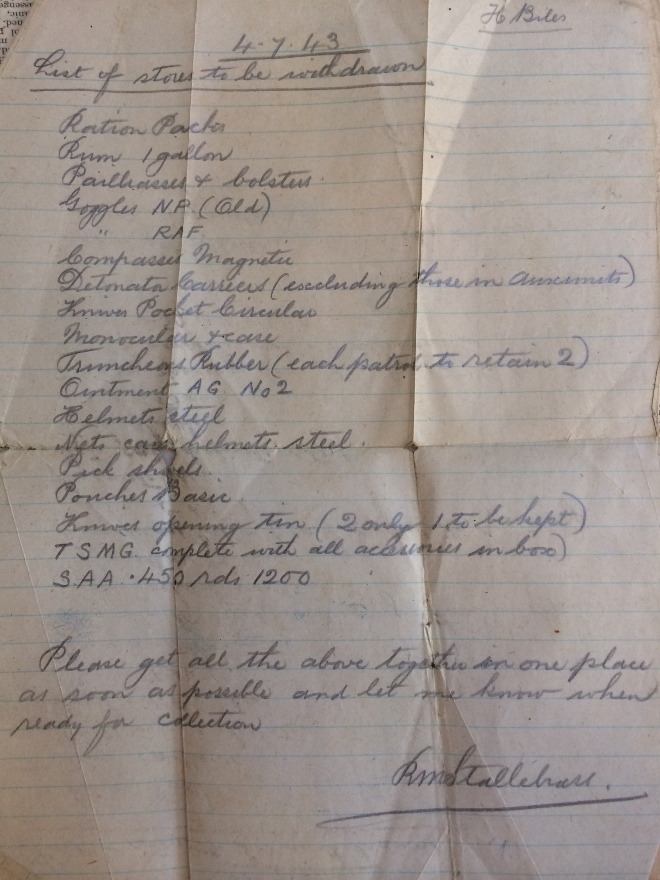 H Biles
4.7.43
List of stores to be withdrawn
Ration Packs
Rum 1 gallon
Pailliasses & bolsters.
Goggles NP. (Old)
" RAF
Compasses Magnetic
Detonator Carriers (excluding those in auxunits)
Knives Pocket Circular
Monocular & case
Truncheons Rubber (each patrol to retain 2)
Ointment AG No2
Helmets steel
Nets cam helmets. steel.
Pick
Pouches Basic
Knives opening tin (2 only 1 to be kept)
TSMG. complete with all accessories in box)
S.A.A .450 rds 1200
Please get all the above together in one place
as soon as possible and let me know when
ready for collection
RM Stallebrass.